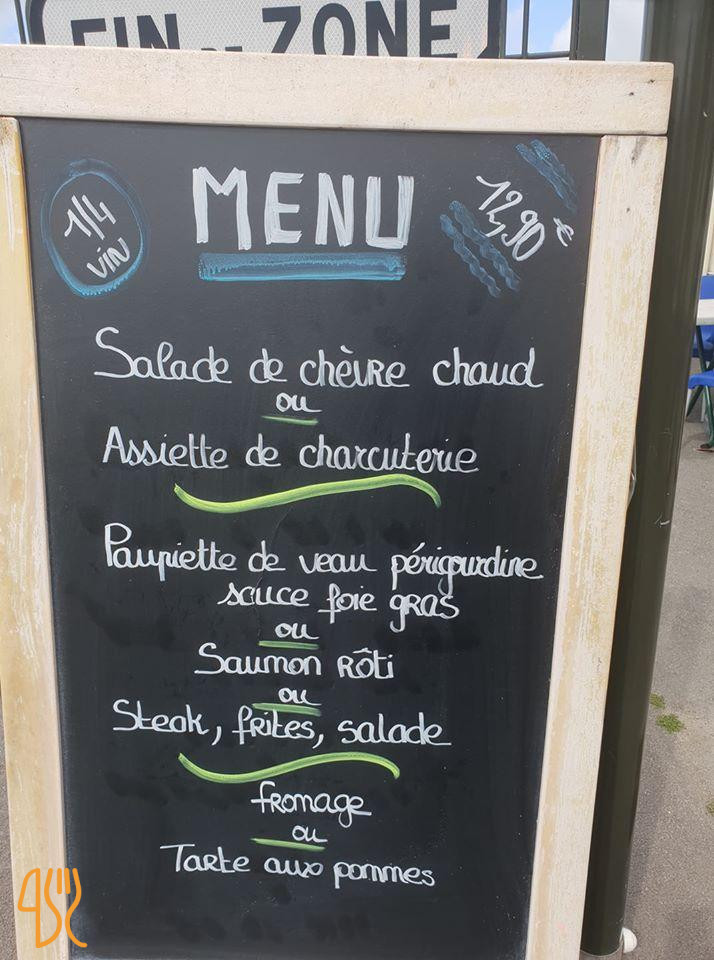 FIN DE ZONE
1/4
VIN
MENU
12,90 €
Salade de chèvre chaud
ou
Assiette de charcuterie
Paupiette de veau périgourdine
sauce foie gras
ou
Saumon Rôti
ou
Steak, frites, salade
fromage
ou
Tarte aux pommes